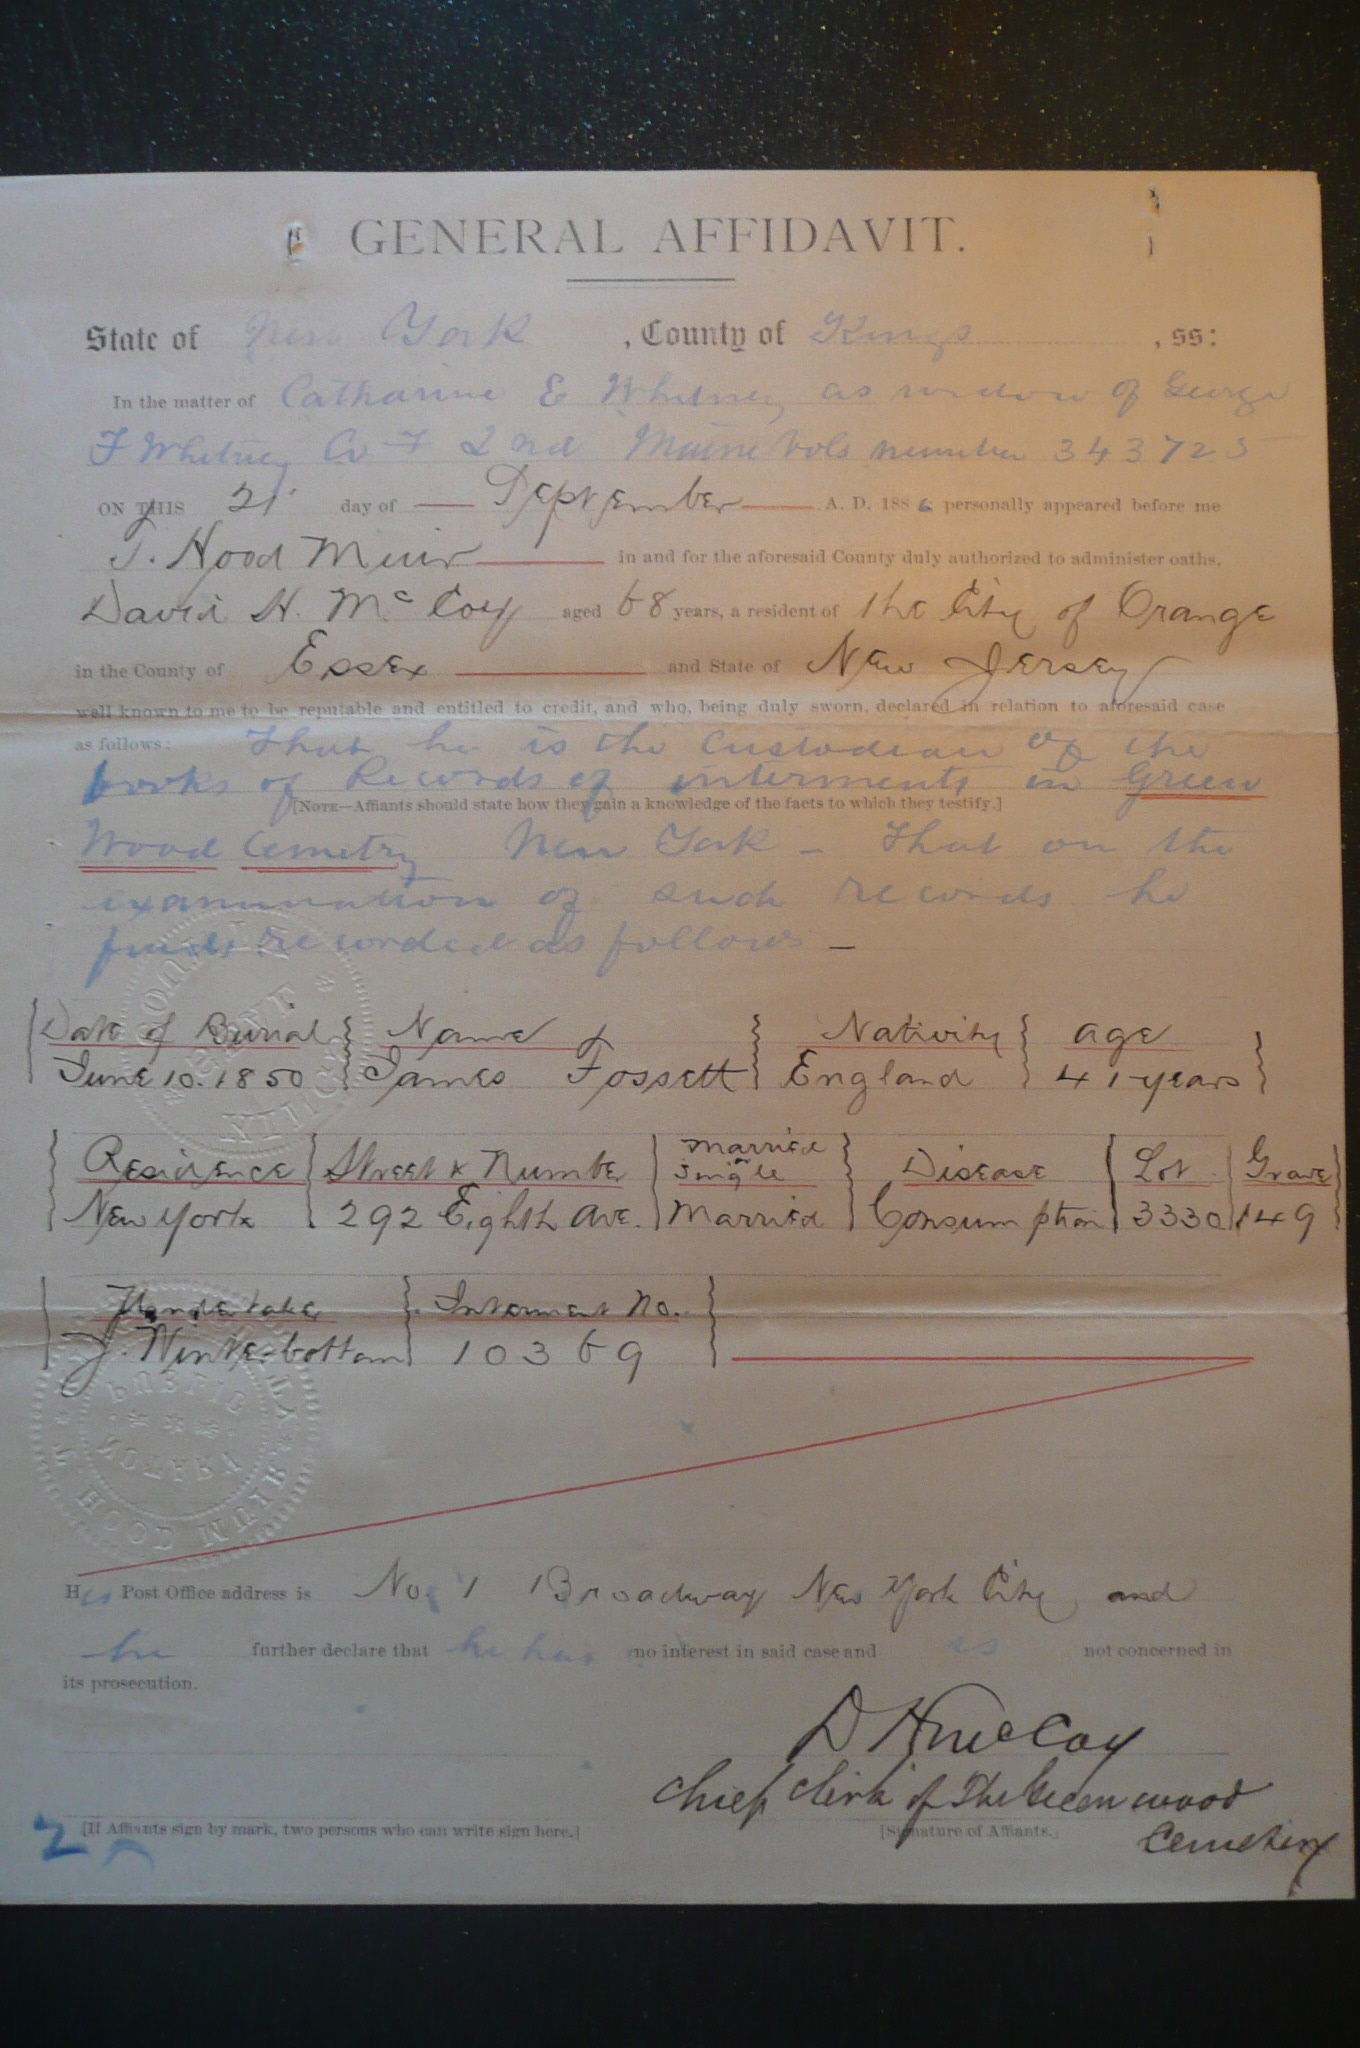 GENERAL AFFIDAVIT.
State of New York, County of Kings, ss:
In the matter of Catharine E Whitney as widow of George
F Whitney Co F 2nd Maine Vols number 343725
ON THIS 21 day of September A. D. 1886 personally appeared before me
T. Hood Muir in and for the aforesaid County duly authorized to administer oaths,
David H. McCoy aged 68 years, a resident of the City of Orange
in the County of Essex and State of New Jersey
well known to me to be reputable and entitled to credit, and who, being duly sworn, declared in relation to aforesaid case
as follows: That he is the Custodian of the
books of Records of interments in Green
[NOTE—Affiants should state how they gain a knowledge of the facts to which they testify.]
Wood Cemetry New York - That on the
examination of such records he
finds recorded as follows -
Date of Burial Name Nativity age
June 10. 1850 James Fossett England 41 years
Married
Residence Street & Number or Single Disease Lot Grave
New York 292 Eighth Ave. Married Consumption 3330 149
Undertaker Interment No.
J. Winterbottom 10369
PUBLIC
NOTARY
T. HOOD MUIR
His Post Office address is No. 1 Broadway New York City and
he further declare that he has no interest in said case and is not concerned in
its prosecution.
D H McCoy
Chief Clerk of The Greenwood
[If Affiants sign by mark, two persons who can write sign here.] [Signature of Affiants.]
Cemetery
2